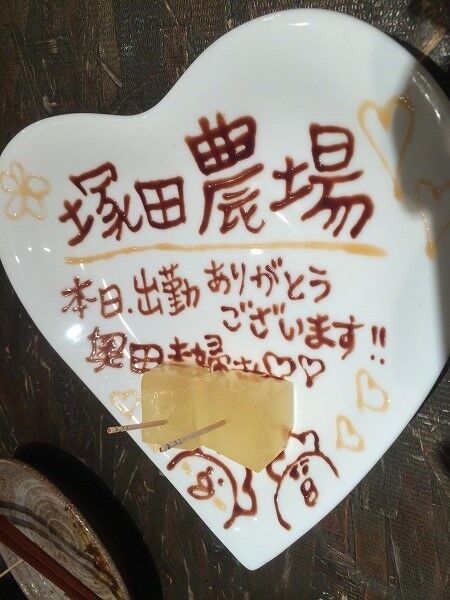 塚田農場
本日、出勤ありがとう
ございます!!
奥田夫婦さん♡♡